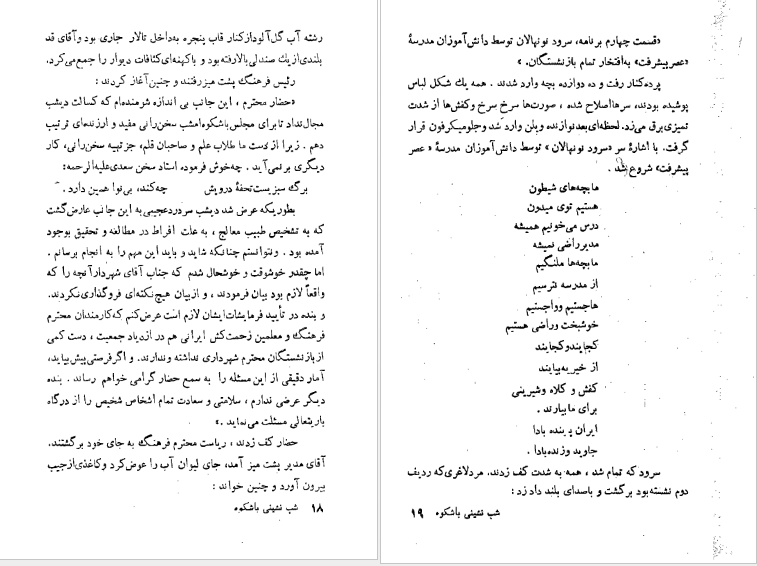 رشته آب گل‌آلود از کنار قاب پنجره به‌داخل تالار جاری بود و آقای قد
بلندی از یك صندلی بالا رفته بود و با کهنه‌ای کثافات دیوار را جمع می‌کرد.
رئیس فرهنگ پشت میز رفتند و چنین آغاز کردند :
«حضار محترم ، این جانب بی اندازه شرمنده‌ام که کسالت دیشب
مجال نداد تا برای مجلس باشکوه امشب سخن‌رانی مفید و ارزنده‌ای ترتیب
دهم . زیرا از دست ما طلاب علم و صاحبان قلم، جز تهیه سخن‌رانی، کار
دیگری بر نمی‌آید . چه‌خوش فرموده استاد سخن سعدی علیه‌الرحمه:
برگ سبزیست تحفهٔ درویش چه‌کند، بی‌نوا همین دارد .
بطوریکه عرض شد دیشب سردرد عجیبی به این جانب عارض گشت
که به تشخیص طبیب معالج ، به علت افراط در مطالعه و تحقیق بوجود
آمده بود . و نتوانستم چنانکه شاید و باید این مهم را به انجام برسانم .
اما چقدر خوشوقت و خوشحال شدم که جناب آقای شهردار آنچه را که
واقعاً لازم بود بیان فرمودند ، و از بیان هیچ نکته‌ای فروگذاری نکردند.
و بنده در تأیید فرمایشات ایشان لازم است عرض کنم که کارمندان محترم
فرهنگ و معلمین زحمت‌کش ایرانی هم در ازدیاد جمعیت ، دست کمی
از بازنشستگان محترم شهرداری نداشته و ندارند. و اگر فرصتی پیش بیاید،
آمار دقیقی از این مسئله را به سمع حضار گرامی خواهم رساند . بنده
دیگر عرضی ندارم ، سلامتی و سعادت تمام اشخاص شخیص را از درگاه
باریتعالی مسئلت می‌نماید .»
حضار کف زدند ، ریاست محترم فرهنگ به جای خود برگشتند.
آقای مدیر پشت میز آمد، جای لیوان آب را عوض کرد و کاغذی از جیب
بیرون آورد و چنین خواند :
۱۸ شب نشینی باشکوه
«قسمت چهارم برنامه، سرود نونهالان توسط دانش‌آموزان مدرسهٔ
«عصر پیشرفت» به‌افتخار تمام بازنشستگان. »
پرده کنار رفت و ده دوازده بچه وارد شدند . همه یك شکل لباس
پوشیده بودند، سرها اصلاح شده ، صورت‌ها سرخ سرخ و کفش‌ها از شدت
تمیزی برق می‌زد. لحظه‌ای بعد نوازنده ویلن وارد شد و جلو میکرفون قرار
گرفت. با اشارهٔ سر «سرود نونهالان » توسط دانش‌آموزان مدرسهٔ « عصر
پیشرفت» شروع شد .
ما بچه‌های شیطون
هستیم توی میدون
درس می‌خونیم همیشه
مدیر راضی نمیشه
ما بچه‌ها ملنگیم
از مدرسه نترسیم
هاجستیم و واجستیم
خوشبخت و راضی هستیم
کجایند و کجایند
از خیریه بیایند
کفش و کلاه و شیرینی
برای ما بیارند .
ایران پاینده بادا
جاوید و زنده بادا .
سرود که تمام شد ، همه به شدت کف زدند. مرد لاغری که ردیف
دوم نشسته بود برگشت و با صدای بلند داد زد :
شب نشینی باشکوه ۱۹